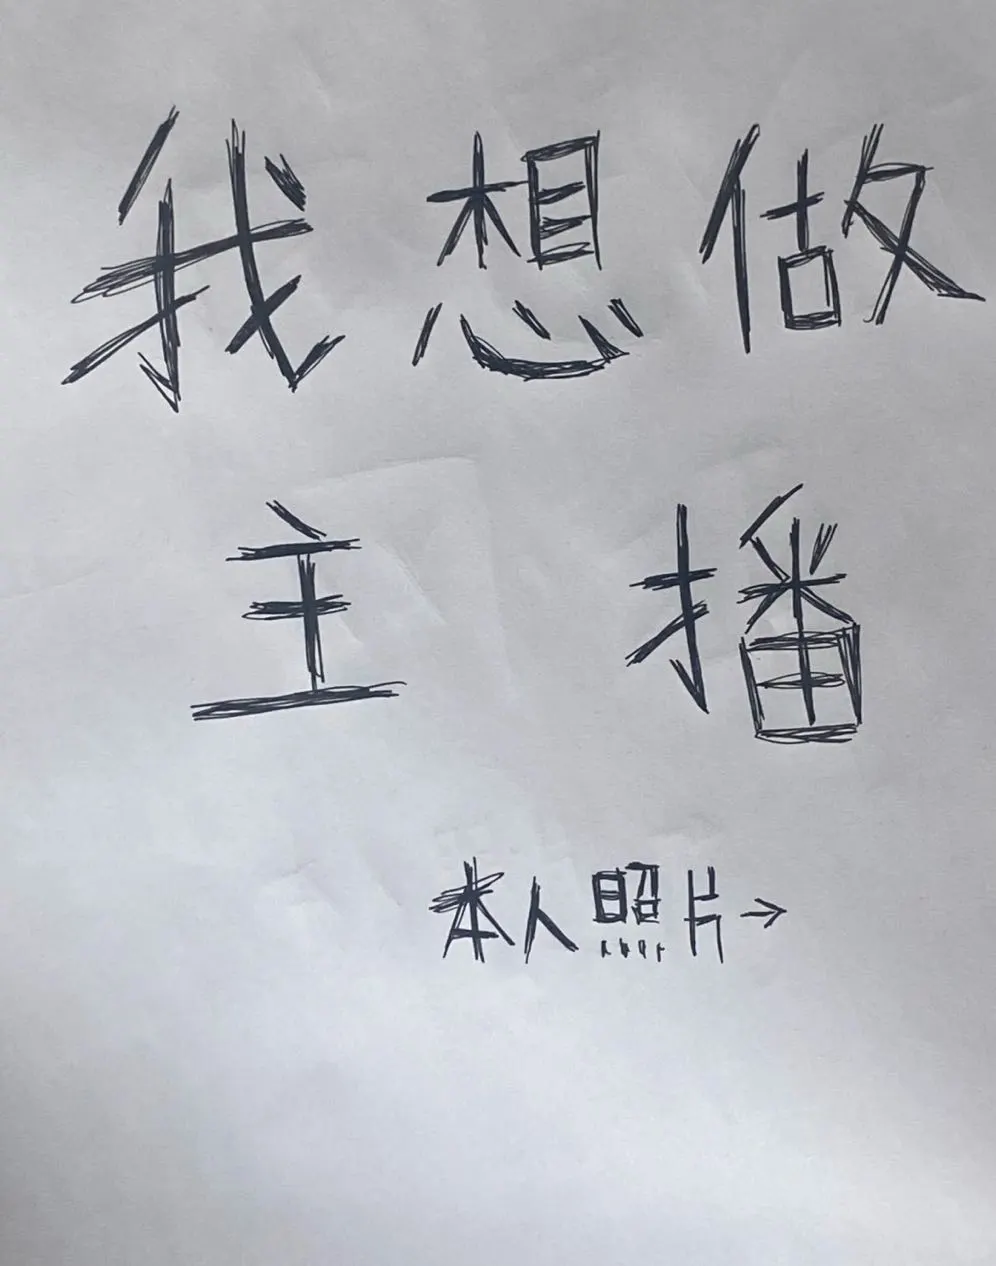 我想做
主播
本人照片→